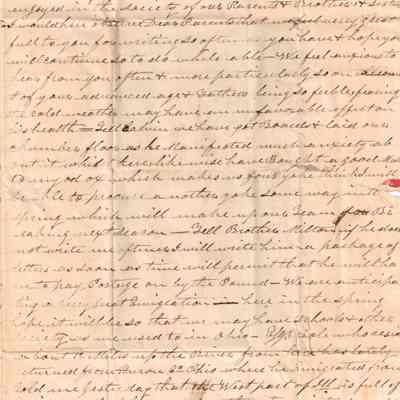 enjoyed in the society of our Parents & Brothers & Sisters
Dear Parents that we feel very grate
full to you for writing so often as you have & hope you
will continue so to do while able - We feel anxious to
hear from you often & more particularly so on account
of your advanced age & Fathers being so feeble, fearing
the cold weather may have an unfavorable effect on
his health - Tell Calvin we have got Boards & laid our
chamber floor as he Manifested much anxiety ab
out it whilst here likewise have Bought a good Mate
to my odd ox which makes us four yoke think I will
be able to procure another yoke some way in the
spring which will make up our Team for Br
eaking next season - Tell Brother Milton if he does
not write me oftner I will write him a package of
letters as soon as time will permit that he will ha
ve to pay Postage on by the Pound - We are anticipa
ting a very great Emigration here in the spring
hope it will be so that we may have schools & other
society as we used to in Ohio - who resides
about miles up the River from here has lately
returned from Huron Co Ohio where he emigrated from
told me yesterday that the West part of Ill is full of